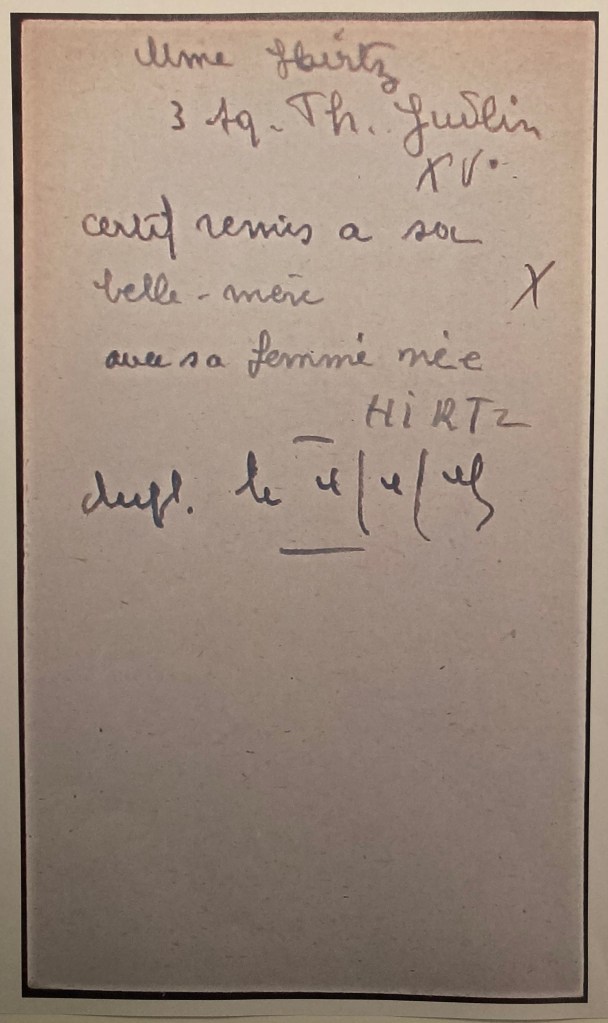 Mme Hirtz
3 sq. Th. Judlin
XVe
certif remis a sa
belle-mère
X
avec sa femme née
HIRTZ
dupl. le 4/4/45